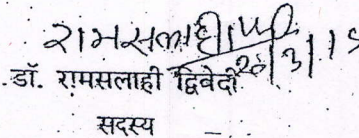 रामसलाही
26/3/15
डॉ. रामसलाही द्विवेदी
सदस्य